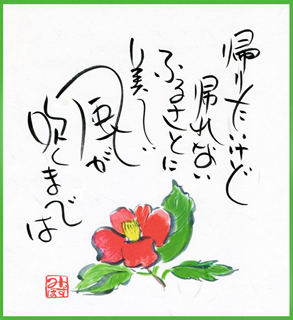 帰りたいけど
帰れない
ふるさとに
美しい
風が
吹くまでは